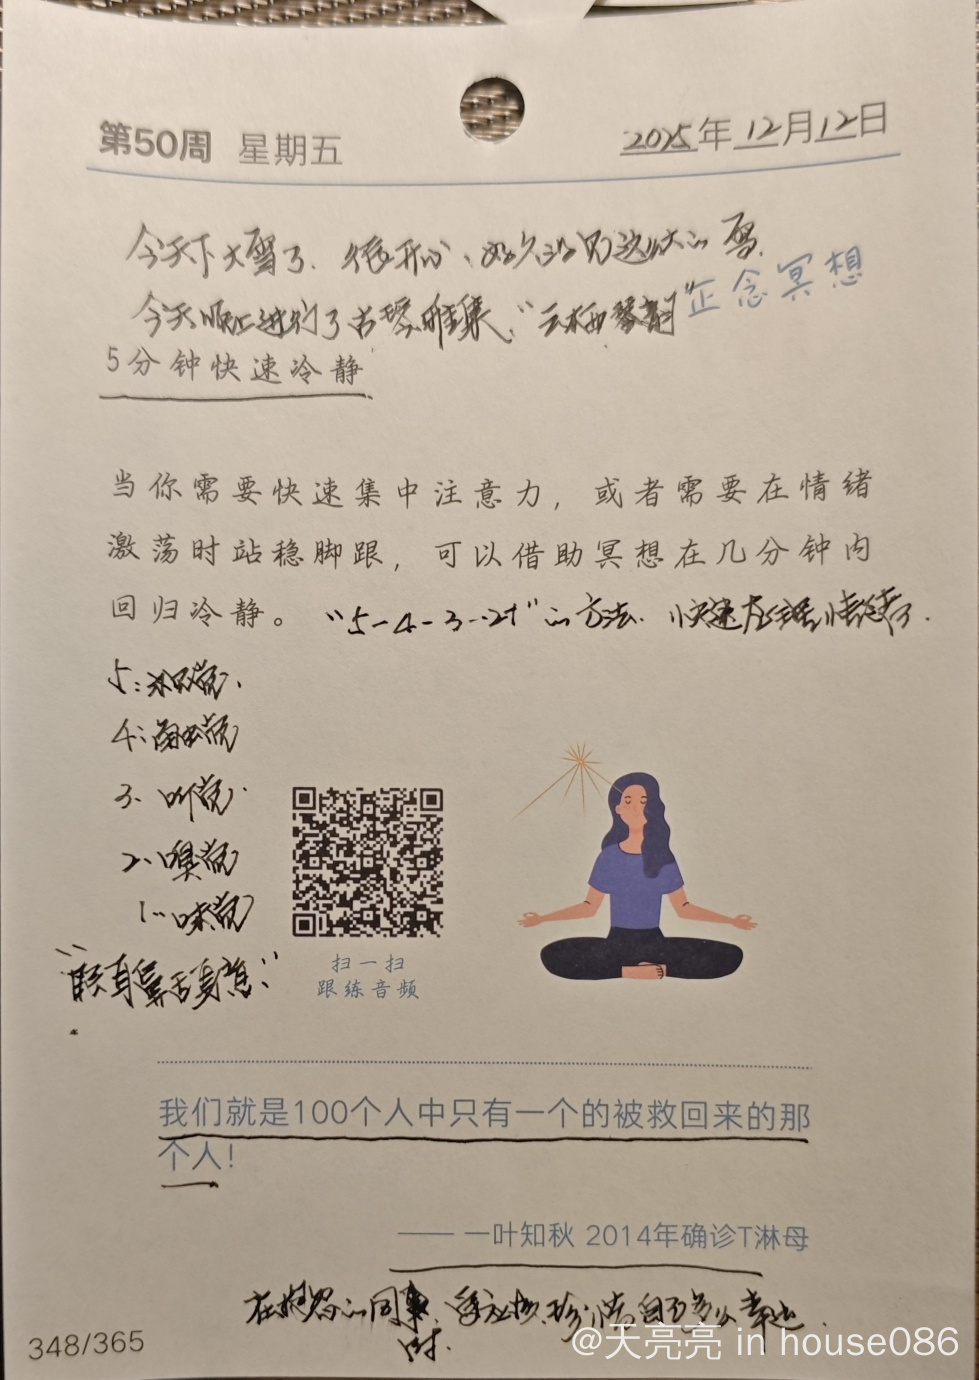 第50周 星期五 2025年12月12日
今天下大雪了、很开心、好久没见这么大的雪
今天晚上进行了古琴雅集、"云栖琴韵"
正念冥想
5分钟快速冷静
当你需要快速集中注意力，或者需要在情绪
激荡时站稳脚跟，可以借助冥想在几分钟内
回归冷静。 "5-4-3-2-1"的方法. 快速
5:视觉.
4:触觉
3、听觉.
2、嗅觉
1、味觉
"眼耳鼻舌身意"
扫一扫
跟练音频
我们就是100个人中只有一个的被救回来的那
个人！
—— 一叶知秋 2014年确诊T淋母
在 的同
时.
348/365
@天亮亮 in house086